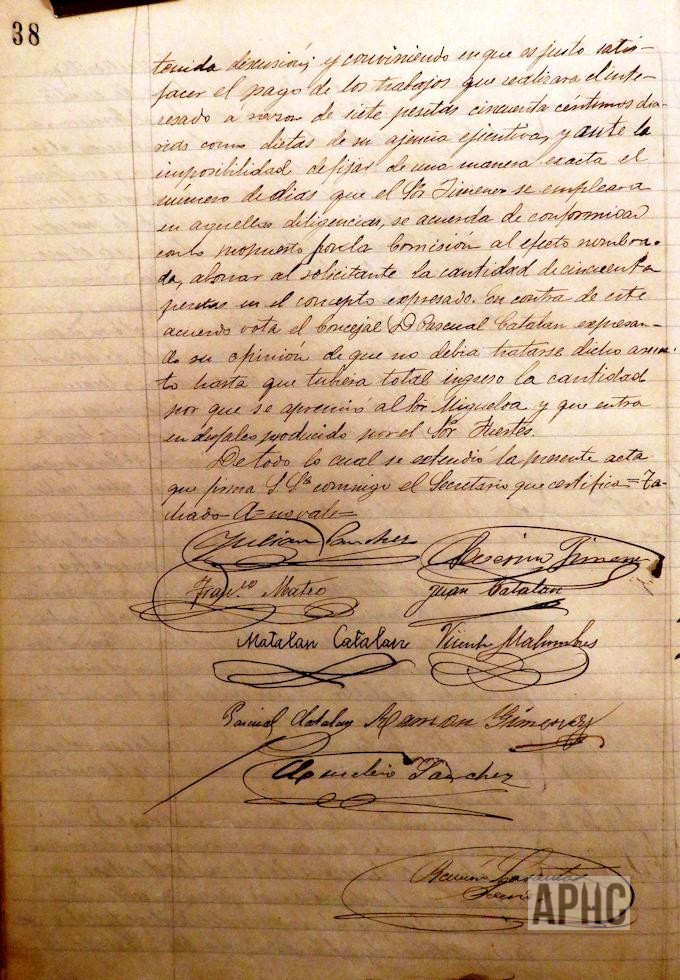 38
tenida discusión; y conviniendo en que es justo satis-
facer el pago de los trabajos que realizara el inte-
resado a razon de siete pesetas cincuenta céntimos dia-
rias como dietas de su ajencia ejecutiva, y ante la
imposibilidad de fijar de una manera exacta el
número de dias que el Sor Jimenez se empleara
en aquellas diligencias, se acuerda de conformidad
con lo propuesto por la Comisión al efecto nombra-
da, abonar al solicitante la cantidad de cincuenta
pesetas en el concepto expresado. En contra de este
acuerdo vota el Concejal D Pascual Catalan expresan-
do su opinión de que no debia tratarse dicho asun-
to hasta que tubiera total ingreso la cantidad
por que se apremió al Sor Miguelsa y que entra
en producido por el Sor Fuertes.
De todo lo cual se extendió la presente acta
que firma S. Sa conmigo el Secretario que certifica = Ta-
chado A = no vale =
Julian Sanchez
Jimen
Franco Mateo
Juan Catalan
Matalan Catalan
Vicente
Pascual Catalan
Ramon Gimenez
Sanchez
Ramón
APHC